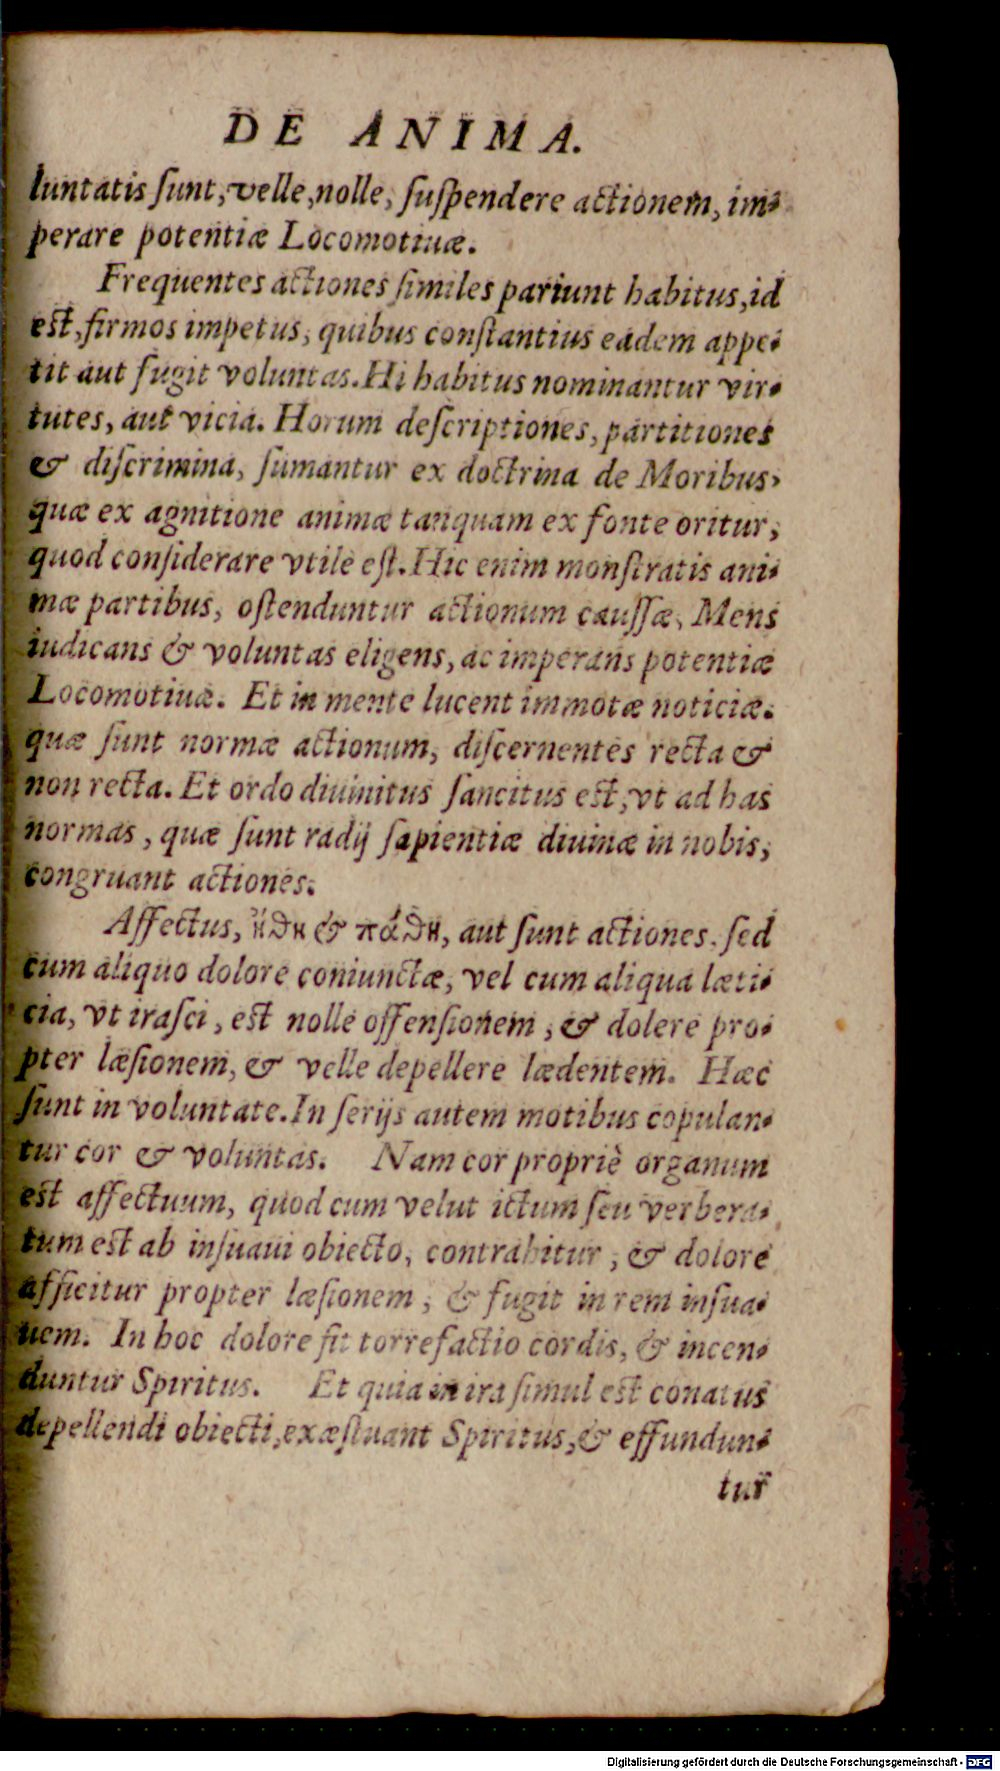 DE ANIMA.
luntatis ſunt, velle, nolle, ſuſpendere actionem, im-
perare potentiæ Locomotiuæ.
Frequentes actiones ſimiles pariunt habitus, id
est, firmos impetus, quibus conſtantius eadem appe-
tit aut fugit voluntas. Hi habitus nominantur vir-
tutes, aut vicia. Horum deſcriptiones, partitiones
& diſcrimina, ſumantur ex doctrina de Moribus,
quæ ex agnitione animæ tanquam ex fonte oritur,
quod conſiderare vtile eſt. Hic enim monſtratis ani-
mæ partibus, oſtenduntur actionum cauſſæ, Mens
iudicans & voluntas eligens, ac imperans potentiæ
Locomotiuæ. Et in mente lucent immotæ noticiæ.
quæ ſunt normæ actionum, diſcernentes recta &
non recta. Et ordo diuinitus ſancitus est, vt ad has
normas, quæ ſunt radij ſapientiæ diuinæ in nobis,
congruant actiones.
Affectus, ἤθη & πάθη, aut ſunt actiones. ſed
cum aliquo dolore coniunctæ, vel cum aliqua læti-
cia, vt iraſci, est nolle offenſionem, & dolere pro-
pter læſionem, & velle depellere lædentem. Hæc
ſunt in voluntate. In ſerijs autem motibus copulan-
tur cor & voluntas. Nam cor propriè organum
est affectuum, quod cum velut ictum ſeu verbera-
tum est ab inſuaui obiecto, contrahitur, & dolore
afficitur propter læſionem, & fugit in rem inſua-
uem. In hoc dolore fit torrefactio cordis, & incen-
duntur Spiritus. Et quia in ira ſimul est conatus
depellendi obiecti, exæſtuant Spiritus, & effundun-
tur
Digitalisierung gefördert durch die Deutsche Forschungsgemeinschaft - DFG